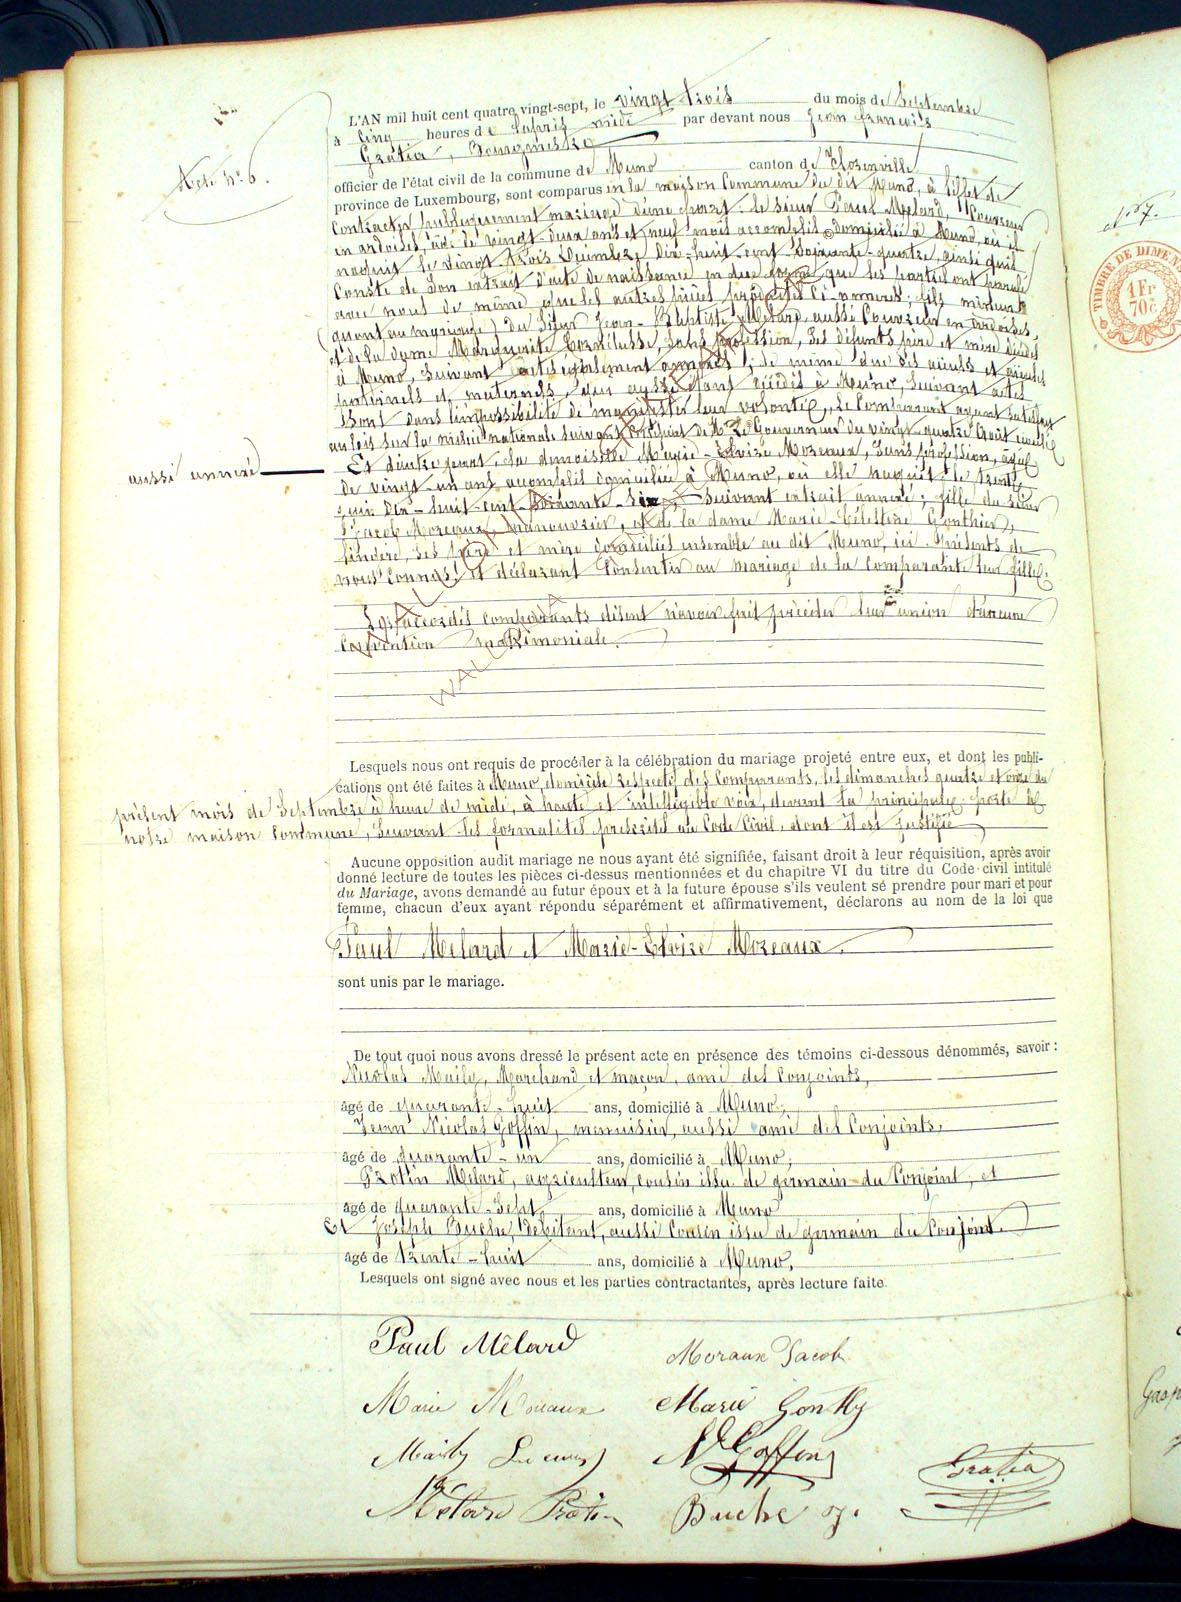 Acte N° 6.
L'AN mil huit cent quatre vingt-sept, le vingt trois du mois de Septembre
à cinq heures de l'après midi par devant nous Jean François
Gratia, Bourgmestre
officier de l'état civil de la commune de Muno canton de Florenville
province de Luxembourg, sont comparus en la maison Commune du dit Muno, à l'effet de
Contracter publiquement mariage d'une part : le sieur Paul Mélard, Couvreur
en ardoises, âgé de vingt-deux ans et neuf mois accomplis, domicilié à Muno, où il
naquit le vingt trois Décembre Dix-huit-cent Soixante-quatre, ainsi qu'il
Conste de son extrait d'acte de naissance en due forme que les parties ont paraphé
avec nous de même que les autres pièces produites ci-annexées; fils mineur
(quant au mariage) du Sieur Jean-Baptiste Mélard, aussi Couvreur en ardoises
et de la dame Marguerite sans profession, Ses défunts père et mère décédés
à Muno, suivant actes également annexés ; de même que ses aïeuls et aïeules
paternels et maternels, étant décédés à Muno, suivant actes
Sont dans l'impossibilité de manifester leur volonté, Le Comparant ayant satisfait
au lois sur la milice nationale suivant Certificat de Mr Le Gouverneur du vingt-quatre Août
Et d'autre part, la demoiselle Marie-Eloïse Moreaux, Sans profession, âgée
aussi annexé
de vingt-un ans accomplis domiciliée à Muno, où elle naquit le trente
juin Dix-huit-cent-Soixante-Six, Suivant extrait annexé ; fille du sieur
Jacob Moreaux manouvrier, et de la dame Marie-Célestine Gonthier,
lingère, Ses père et mère domiciliés ensemble au dit Muno, ici présents de
nous Connus, et déclarant Consentir au mariage de la Comparante leur fille.
Lesquels comparants disent n'avoir fait précéder leur union d'aucune
Convention matrimoniale.
Lesquels nous ont requis de procéder à la célébration du mariage projeté entre eux, et dont les publi-
cations ont été faites à Muno, domicile respectif des Comparants, les dimanches quatre et onze du
présent mois de Septembre à heure de midi, à haute et intelligible voix, devant la principale porte de
notre maison Commune, Suivant les formalités prescrites au Code Civil, dont il est justifié
Aucune opposition audit mariage ne nous ayant été signifiée, faisant droit à leur réquisition, après avoir
donné lecture de toutes les pièces ci-dessus mentionnées et du chapitre VI du titre du Code civil intitulé
du Mariage, avons demandé au futur époux et à la future épouse s'ils veulent se prendre pour mari et pour
femme, chacun d'eux ayant répondu séparément et affirmativement, déclarons au nom de la loi que
Paul Mélard et Marie-Eloïse Moreaux
sont unis par le mariage.
De tout quoi nous avons dressé le présent acte en présence des témoins ci-dessous dénommés, savoir :
Nicolas Mailly, Marchand et maçon, ami des Conjoints,
âgé de quarante-huit ans, domicilié à Muno,
Jean Nicolas Goffin, menuisier, aussi ami des Conjoints,
âgé de quarante-un ans, domicilié à Muno,
Protin Mélard, agriculteur, cousin issu de germain du Conjoint, et
âgé de quarante-sept ans, domicilié à Muno
Et Joseph Buche, débitant, aussi Cousin issu de germain du Conjoint
âgé de trente-huit ans, domicilié à Muno,
Lesquels ont signé avec nous et les parties contractantes, après lecture faite
Paul Mélard
Moraux Jacob
Marie Moreaux
Marie Gonthy
Mailly
N Goffin
Gratia
Mélard Protin
Buche J.
N° 7.
TIMBRE DE DIMENS
1 Fr
70 c
WALLONIA
WALLONIA